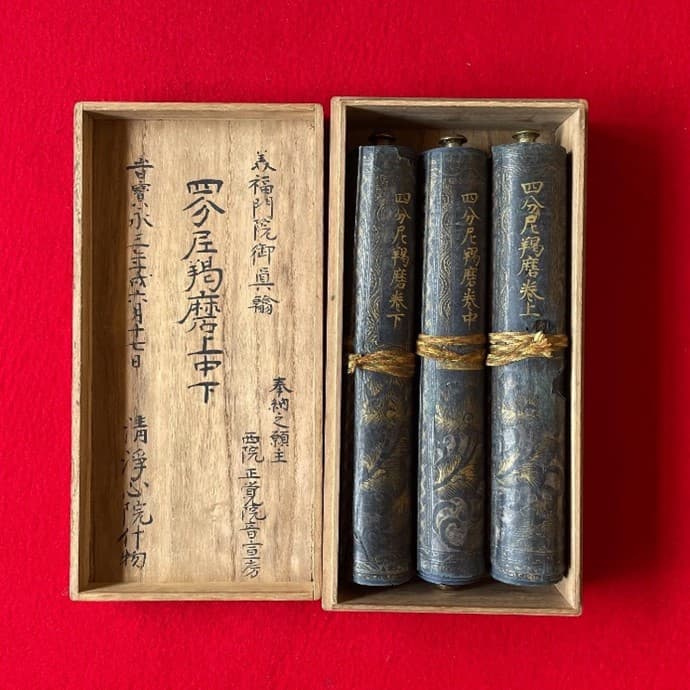 美福門院御眞翰
奉納之願主
西院 正覚院音宣房
四分尼羯磨上中下
旹寶永三年戌六月十七日
清浄心院什物
四分尼羯磨卷上
四分尼羯磨卷中
四分尼羯磨卷下